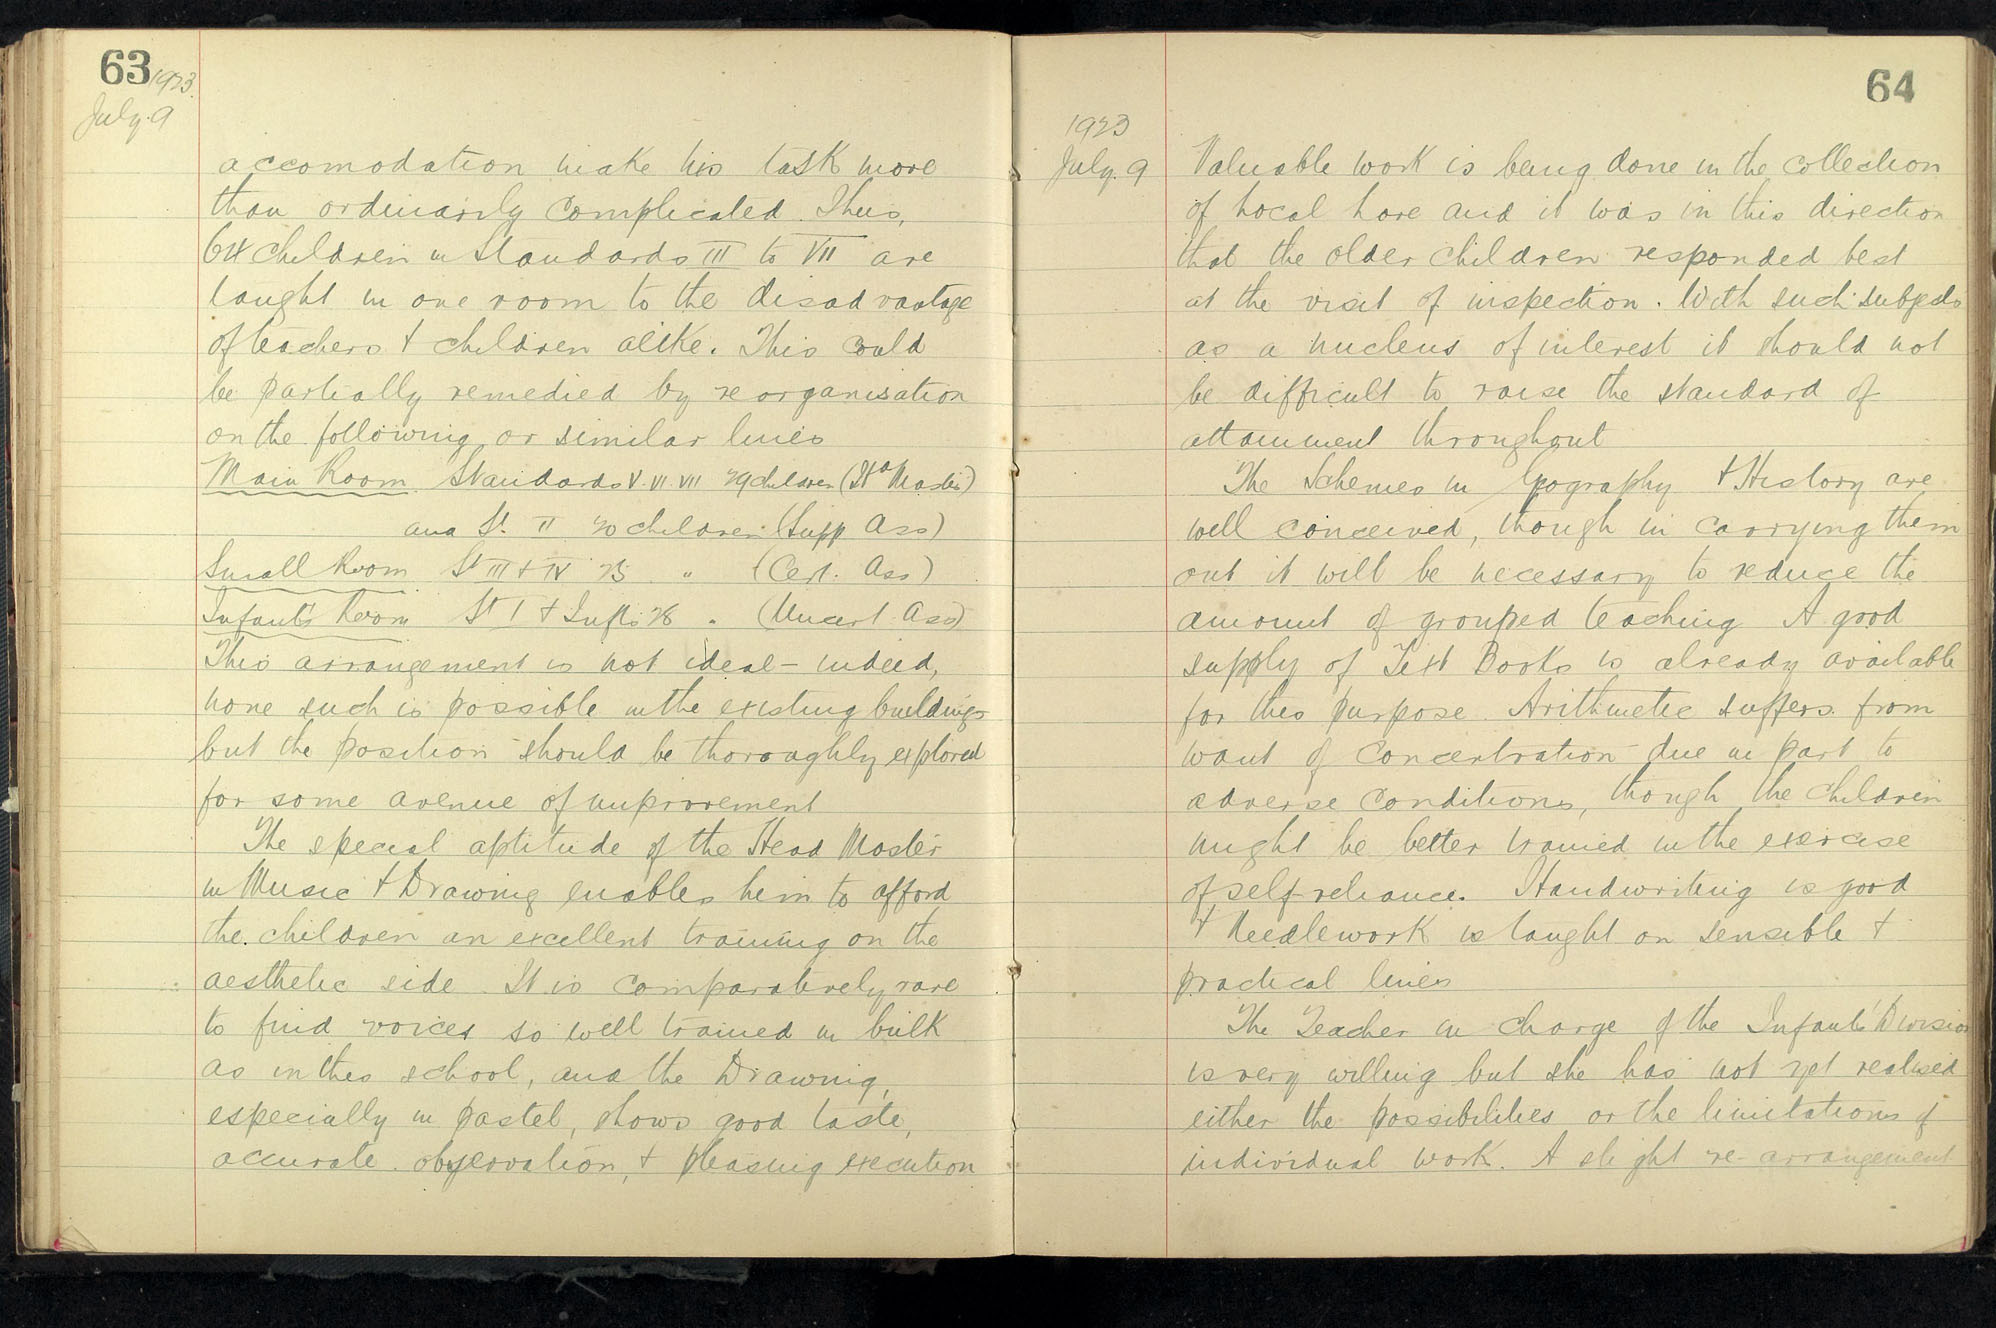 63 1923
July. 9
accomodation make his task more
than ordinarily complicated. Thus,
64 children in Standards III to VII are
taught in one room to the disadvantage
of teachers & children alike. This could
be partially remedied by reorganisation
on the following or similar lines
Main Room Standards V. VI. VII 29 children (Hd Master)
and St. II 20 children (Supp Ass)
Small Room St III & IV 25 " (Cert. Ass)
Infants' Room St I & Infts 28 " (Uncert. Ass)
This arrangement is not ideal – indeed,
none such is possible in the existing buildings
but the position should be thoroughly explored
for some avenue of improvement
The special aptitude of the Head Master
in Music & Drawing enables him to afford
the children an excellent training on the
aesthetic side. It is comparatively rare
to find voices so well trained in bulk
as in this school, and the Drawing,
especially in pastel, shows good taste,
accurate observation, & pleasing execution
64
1923
July. 9
Valuable work is being done in the collection
of Local Lore and it was in this direction
that the older children responded best
at the visit of inspection. With such subjects
as a nucleus of interest it should not
be difficult to raise the standard of
attainment throughout
The Schemes in Geography & History are
well conceived, though in carrying them
out it will be necessary to reduce the
amount of grouped teaching A good
supply of Text Books is already available
for this purpose. Arithmetic suffers from
want of concentration due in part to
adverse conditions, though the children
might be better trained in the exercise
of self-reliance. Handwriting is good
& Needlework is taught on sensible &
practical lines
The Teacher in charge of the Infants' Division
is very willing but she has not yet realised
either the possibilities or the limitations of
individual work. A slight re-arrangement